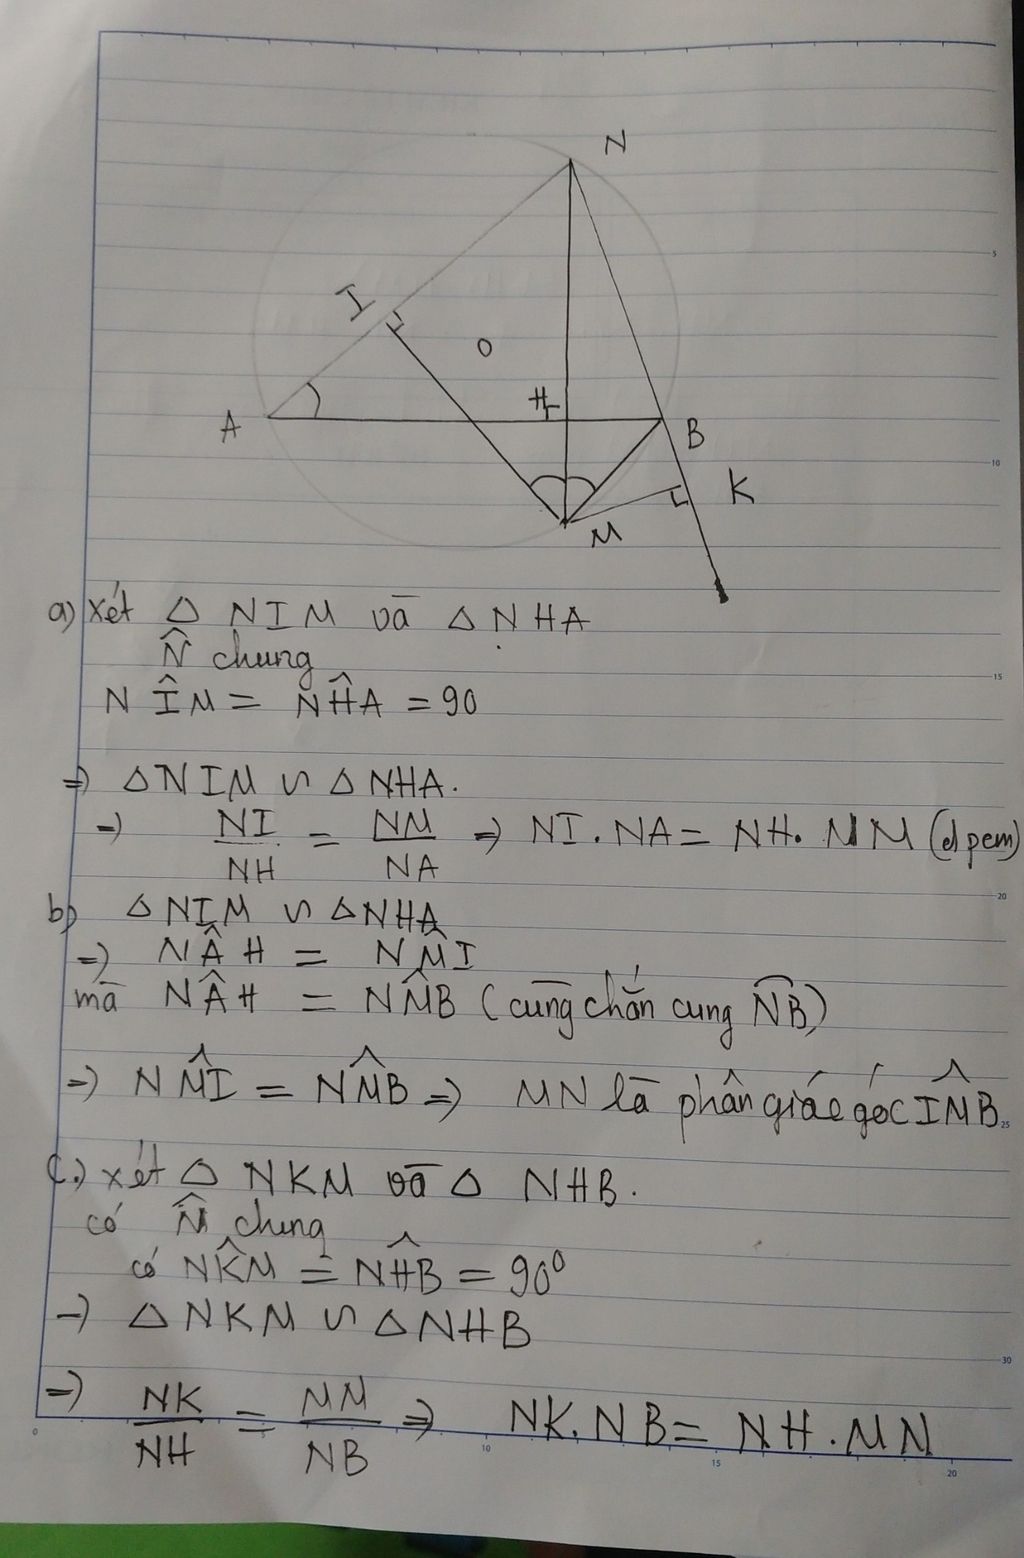 N
I
O
H
A
B
K
M
a) xét △ NIM và △ NHA
N̂ chung
N Î M = N Ĥ A = 90
=> △ NIM ∽ △ NHA.
=> NI/NH = NM/NA => NI . NA = NH . NM (đpcm)
b) △ NIM ∽ △ NHA
=> N Â H = N M̂ I
mà N Â H = N M̂ B (cùng chắn cung NB)
=> N M̂ I = N M̂ B => MN là phân giác góc I M̂ B.
c.) xét △ NKM và △ NHB.
có N̂ chung
có N K̂ M = N Ĥ B = 90⁰
=> △ NKM ∽ △ NHB
=> NK/NH = MN/NB => NK . NB = NH . MN
5
10
15
20
25
30
0
10
15
20